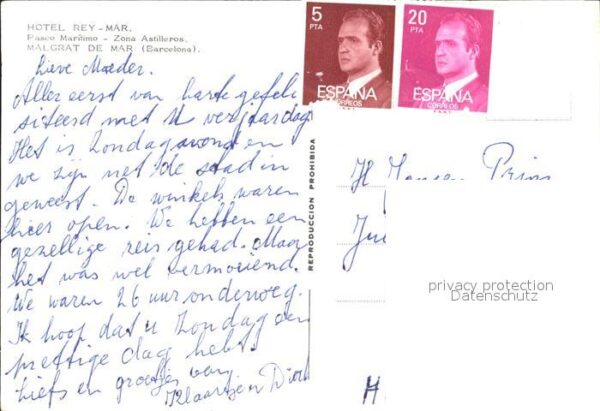 HOTEL REY-MAR.
Paseo Marítimo - Zona Astilleros.
MALGRAT DE MAR (Barcelona).
Lieve Moeder.
Aller eerst van harte gefeli
siteerd met U verjaardag
Het is Zondagavond en
we zijn net de stad in
geweest. De winkels waren
hier open. We hebben een
gezellige reis gehad. Maar
het was wel vermoeiend.
We waren 26 uur onderweg.
Ik hoop dat u Zondag een
prettige dag hebt.
Liefs en groetjes van
Klaartje en Dirk
REPRODUCCION PROHIBIDA
5
PTA
ESPAÑA
CORREOS
20
PTA
ESPAÑA
CORREOS
Prins
privacy protection
Datenschutz
H